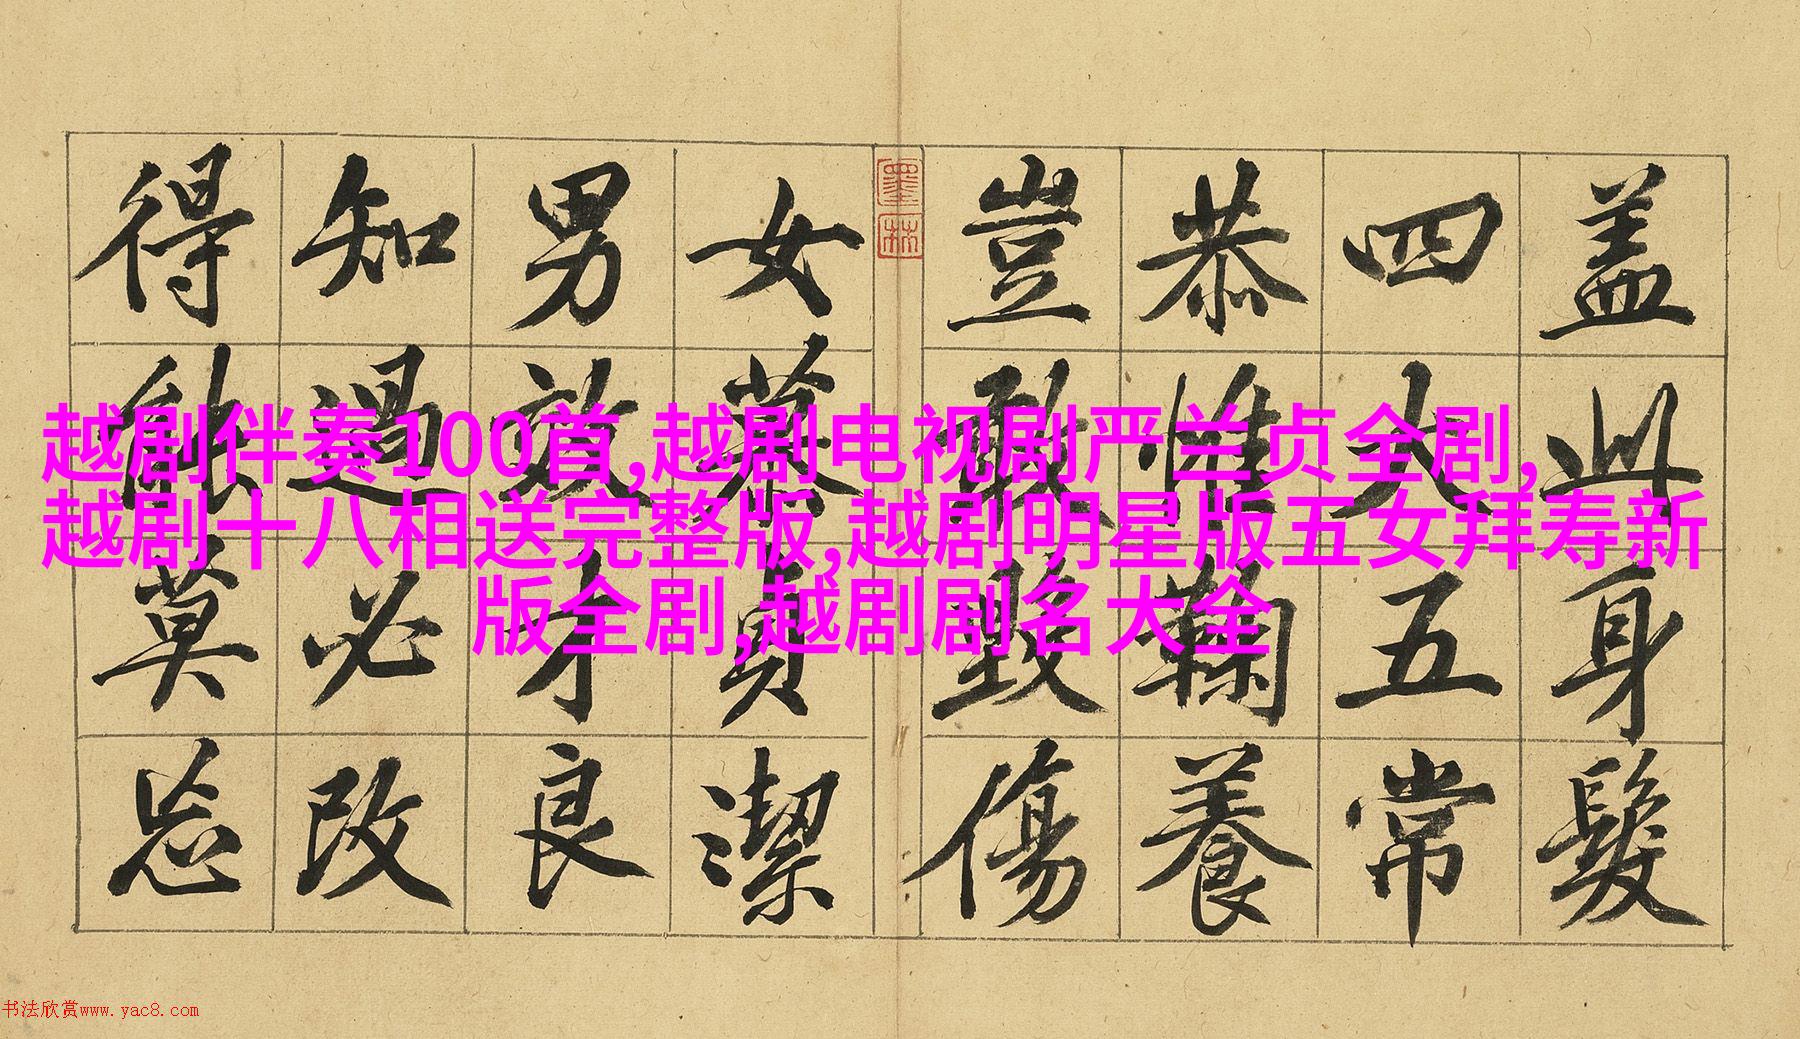 越剧伴奏100首,越剧电视剧严兰贞全剧,
越剧十八相送完整版,越剧明星版五女拜寿新
版全剧,越剧剧名大全
盖此身髮
四大五常
恭惟鞠養
豈敢毀傷
墨林
女慕貞潔
男效才良
知過必改
得能莫忘
书法欣赏www.yac8.com